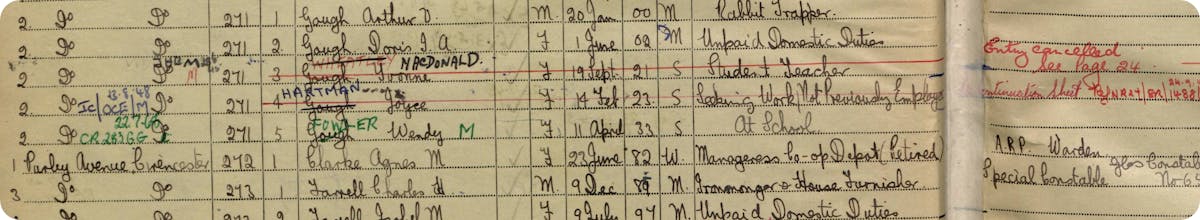 2. Do Do 271 1 Gough Arthur D. M. 20 Jan 00 M Rabbit Trapper.
2 Do Do 271 2. Gough Doris I. A. F 1 June 02 M Unpaid Domestic Duties
Entry cancelled
MACDONALD.
2 Do Do 271 3 Gough Yvonne F 19 Sept. 21 S Student Teacher
See Page 24
HARTMAN
13.8.48
2. Do IC/OCE/M Do 271 4 Gough Joyce F 14 Feb 23. S Seeking Work Not Previously Employed
Continuation Sheet
22.7.60
FOWLER
2. Do CR 283 GG Do 271 5 Gough Wendy M F 11 April 33 S At School
1 Purley Avenue Cirencester 272 1 Clarke Agnes M. F 23 June 82 W. Manageress Co-op Depot (Retired)
A.R.P. Warden
3 Do Do 273 1 Farrell Charles H M. 9 Dec 89 M. Ironmonger & House Furnisher
Special Constable Glos Constab
No 6
2 Farrell Isabel M F 9 July 97 M. Unpaid Domestic Duties